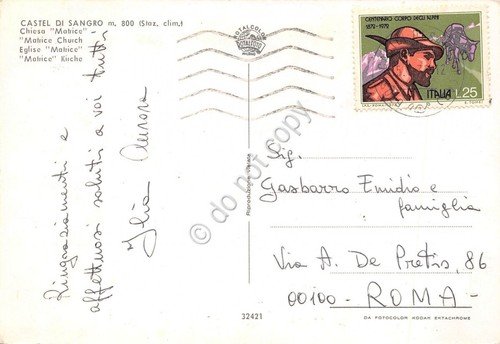 CASTEL DI SANGRO m. 800 (Staz. clim.)
Chiesa "Matrice"
"Matrice Church
Eglise "Matrice"
"Matrice" Kirche
Ringraziamenti e
affettuosi saluti a voi tutti
Aurora
TOTALCOLOR
32421
CENTENARIO CORPO DEGLI ALPINI
1872-1972
ITALIA L.25
Sig.
Gasbarro Emidio e
famiglia
Via A. De Pretis, 86
00100 - ROMA -
DA FOTOCOLOR KODAK EKTACHROME
do not copy